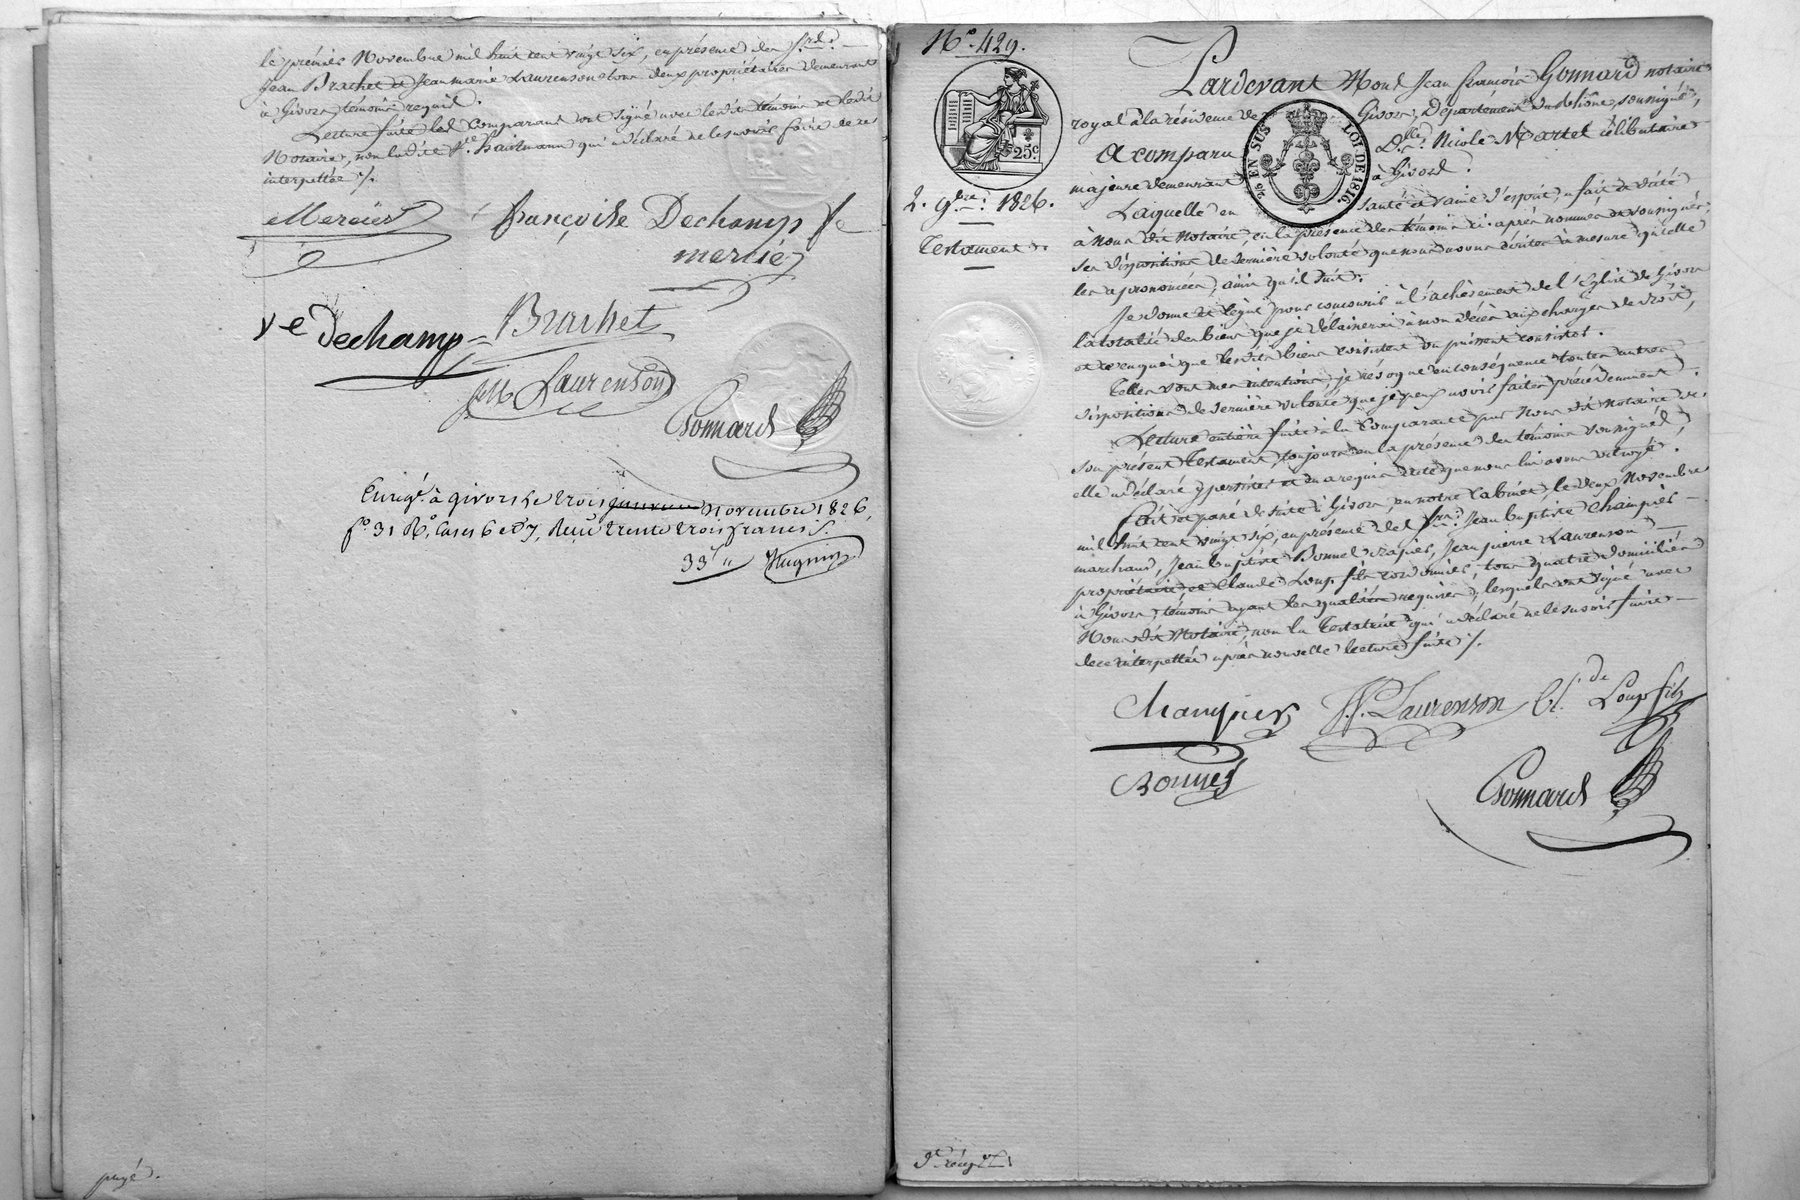 le premier Novembre mil huit cent vingt six, en présence des Srs
Jean Brachet et Jean marie Laurenson tous deux propriétaires demeurants
à Givors témoins requis.
Lecture faite les Comparants ont signé avec lesdits témoins et ledit
Notaire, non ladite Ve qui a déclaré ne le savoir faire de ce
interpellée ./.
Mercier
françoise Dechamp fe
mercier
ve Dechamp
Brachet
JM Laurenson
Gonnard
Enregé à givors le trois Novembre 1826,
fo 31 Ro, Cases 6 et 7, Reçu trente trois francs
33f "
payé.
No. 429.
25c
2. 9bre 1826.
Testament
Pardevant Mous Jean François Gonnard notaire
royal à la résidence de Givors, Département du Rhône, soussigné,
2/6 EN SUS
LOI DE 1816.
A comparu Dlle Nicole Martel célibataire
majeure demeurant à Givors.
Laquelle en santé et saine d'esprit, a fait et dicté
à Nous dit Notaire, en la présence des témoins ci-après nommés et soussignés,
ses dispositions de dernière volonté que nous avons écrites à mesure qu'elle
les a prononcées, ainsi qu'il suit:
Je donne et lègue pour concourir à l'achèvement de l'Eglise de Givors
la totalité des biens que je délaisserai à mon décès aux charges de droit,
et en quoi que lesdits biens consistent ou puissent consister.
Telles sont mes intentions, je révoque en conséquence toutes autres
dispositions de dernière volonté que je peux avoir faites précédemment.
Lecture entière faite à la Comparante par Nous dit Notaire de
son présent Testament, toujours en la présence des témoins soussignés,
elle a déclaré y persister et en a requis acte que nous lui avons octroyé.
Fait et passé de suite à Givors, en notre Cabinet, le deux Novembre
mil huit cent vingt six, en présence des Srs Jean baptiste Champier
marchand, Jean baptiste Bonnel, Jean pierre Laurenson
propriétaire et Claude Loup fils cordonnier, tous quatre domiciliés
à Givors, témoins ayant les qualités requises, lesquels ont signé avec
Nous dit Notaire, non la Testatrice qui a déclaré ne le savoir faire
de ce interpellée après nouvelle lecture faite ./.
Champier
J.P. Laurenson
Cl. de Loup fils
Bonnel
Gonnard